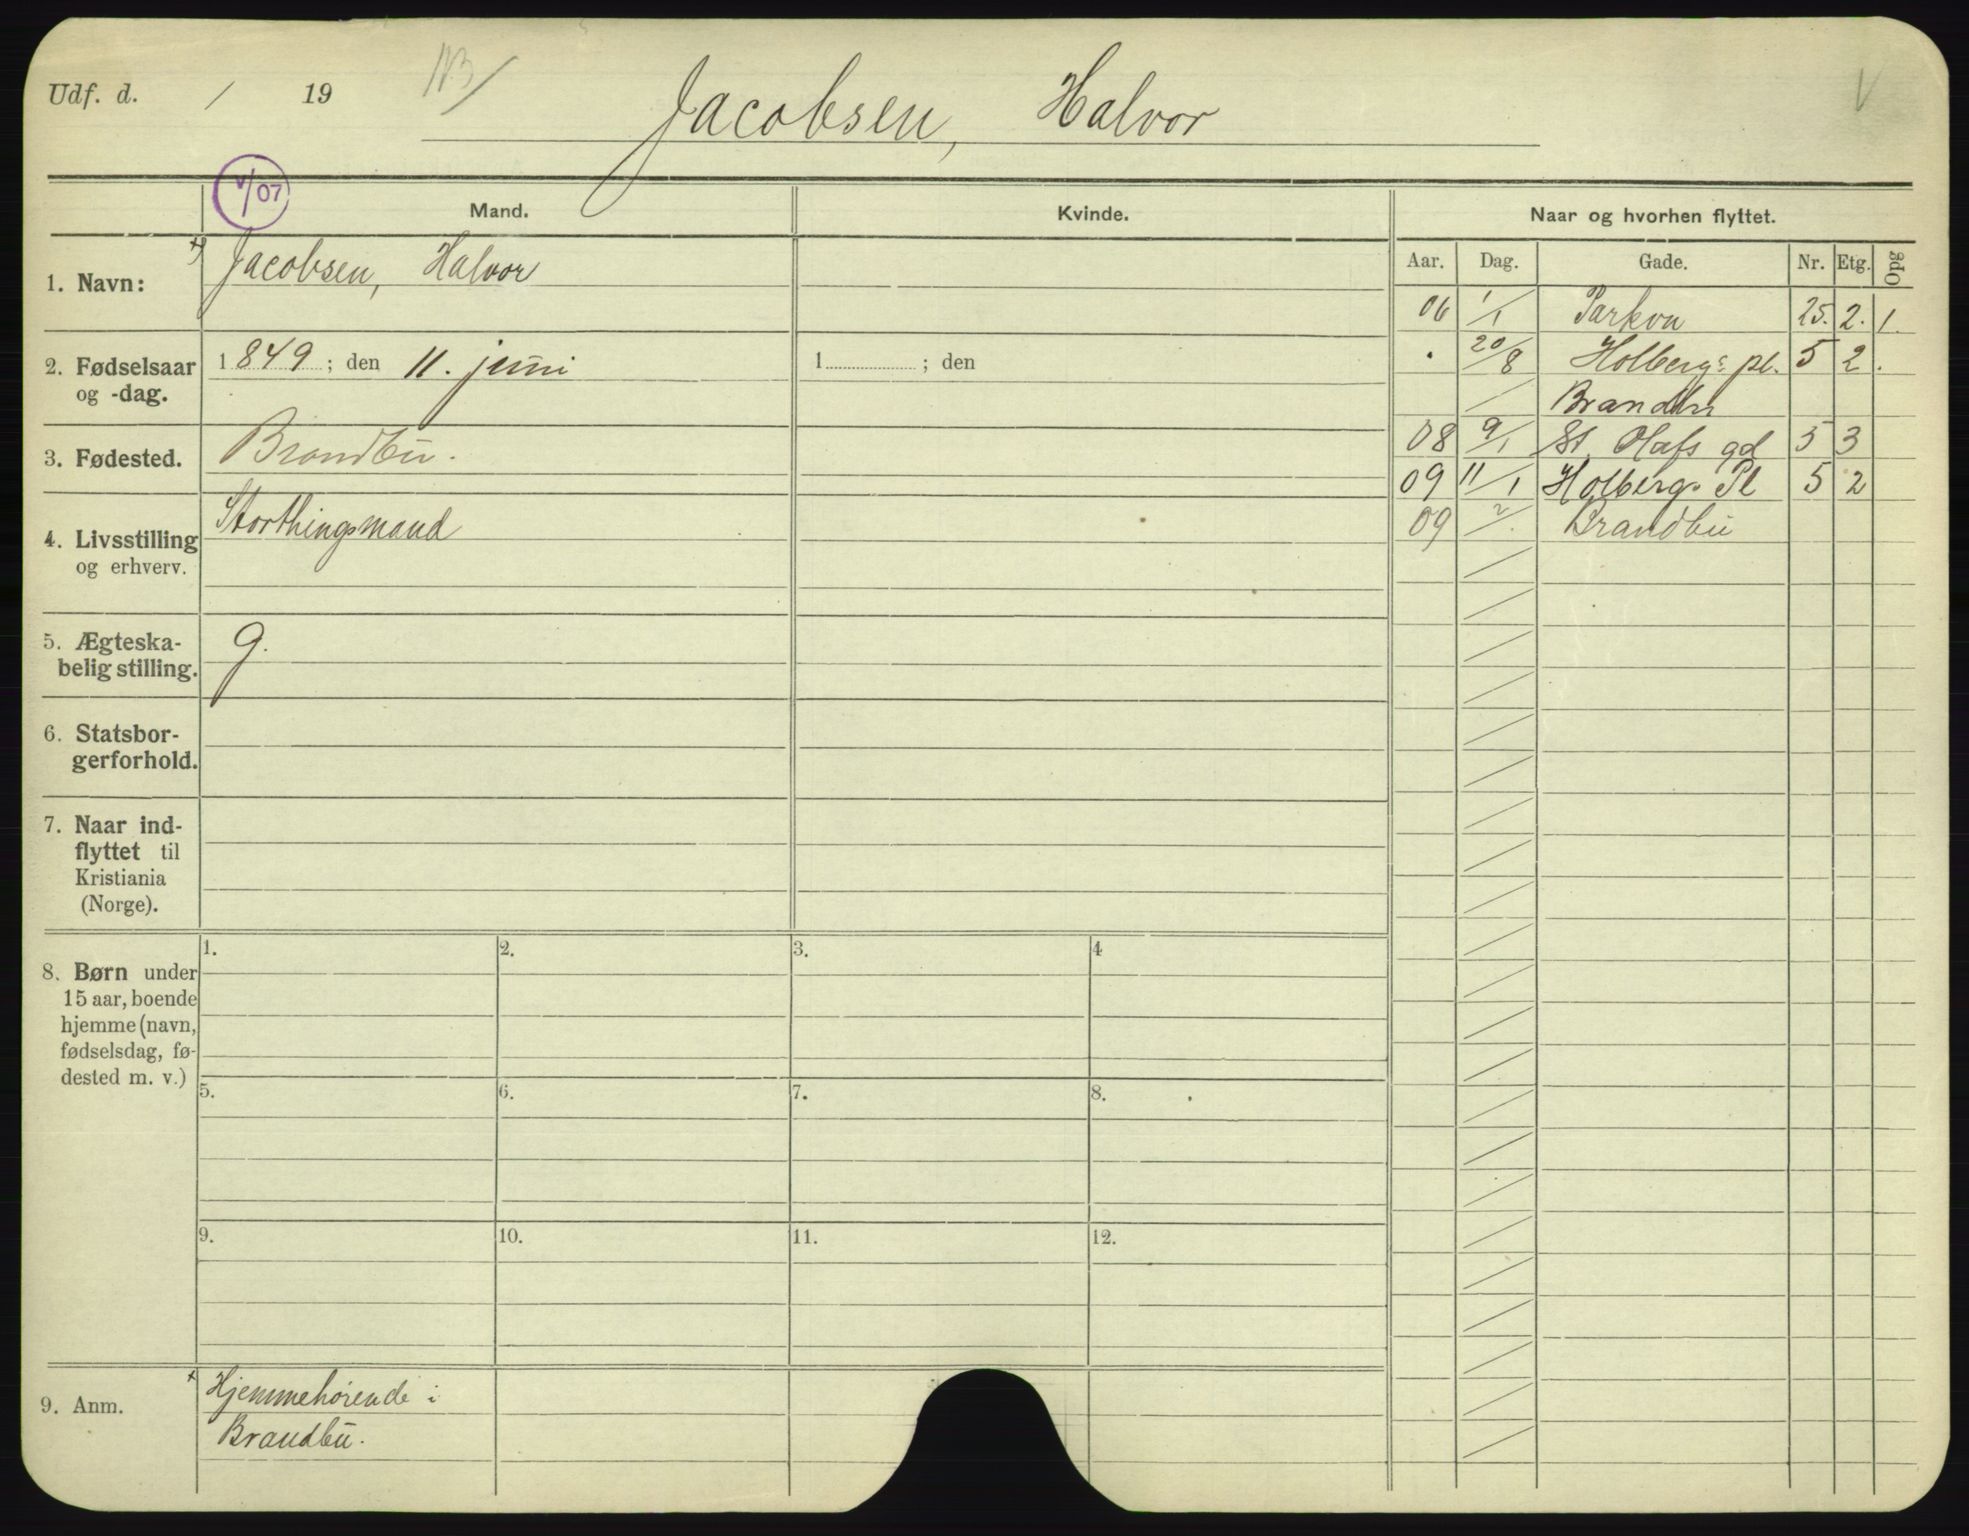 Udf. d. / 19 NB/ V
Jacobsen, Halvor
V/07
Mand. Kvinde. Naar og hvorhen flyttet.
Aar. Dag. Gade. Nr. Etg. Opg
1. Navn: +) Jacobsen, Halvor
2. Fødselsaar og -dag. 1849; den 11. juni 1 ; den
3. Fødested. Brandbu.
4. Livsstilling og erhverv. Storthingsmand
5. Ægteska-
belig stilling. g.
6. Statsbor-
gerforhold.
7. Naar ind-
flyttet til
Kristiania
(Norge).
8. Børn under
15 aar, boende
hjemme (navn,
fødselsdag, fø-
dested m. v.)
1. 2. 3. 4
5. 6. 7. 8.
9. 10. 11. 12.
9. Anm. + Hjemmehörende i
Brandbu.
06 1/1 Parkvn 25. 2. 1.
. 20/8 Holbergs pl. 5 2.
/ Brandbu
08 9/1 St. Olafs gd 5 3
09 11/1 Holbergs Pl 5 2
09 2/. Brandbu